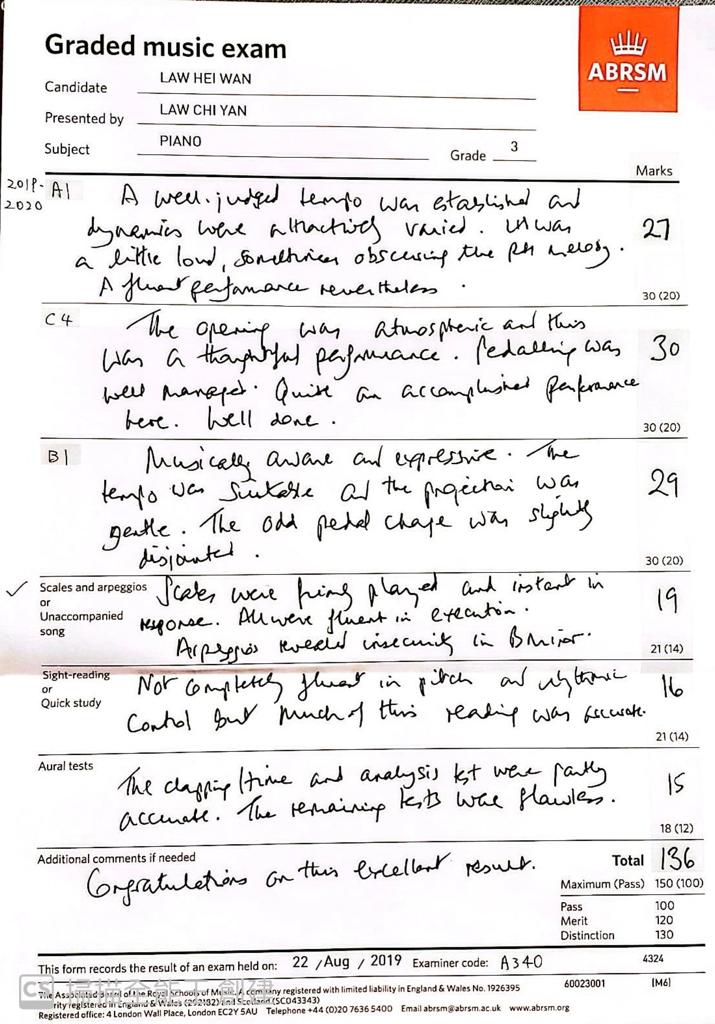 Graded music exam
ABRSM
Candidate LAW HEI WAN
Presented by LAW CHI YAN
Subject PIANO Grade 3
Marks
2019-2020 A1 A well-judged tempo was established and
dynamics were attractively varied. LH was 27
a little loud, sometimes obscuring the RH melody.
A fluent performance nevertheless.
30 (20)
C4 The opening was atmospheric and this
was a thoughtful performance. Pedalling was 30
well managed. Quite an accomplished performance
here. Well done.
30 (20)
B1 Musically aware and expressive. The
tempo was suitable and the projection was 29
gentle. The odd pedal change was slightly
disjointed.
30 (20)
Scales and arpeggios
or
Unaccompanied
song
Scales were firmly played and instant in 19
response. All were fluent in execution.
Arpeggios revealed insecurity in B minor.
21 (14)
Sight-reading
or
Quick study
Not completely fluent in pitch and rhythmic 16
control but much of this reading was accurate.
21 (14)
Aural tests
The clapping/time and analysis test were partly 15
accurate. The remaining tests were flawless.
18 (12)
Additional comments if needed
Congratulations on this excellent result.
Total 136
Maximum (Pass) 150 (100)
Pass 100
Merit 120
Distinction 130
This form records the result of an exam held on: 22 / Aug / 2019 Examiner code: A340 4324
CS 扫描全能王 创建
The Associated Board of the Royal Schools of Music. A company registered with limited liability in England & Wales No. 1926395 60023001 [M6]
Charity registered in England & Wales (292182) and Scotland (SC043343)
Registered office: 4 London Wall Place, London EC2Y 5AU Telephone +44 (0)20 7636 5400 Email abrsm@abrsm.ac.uk www.abrsm.org